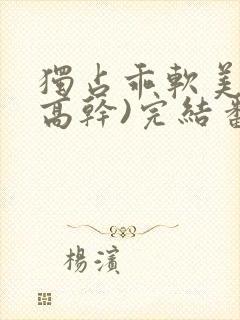 獨占乖軟美
高幹)完結番
楊濱